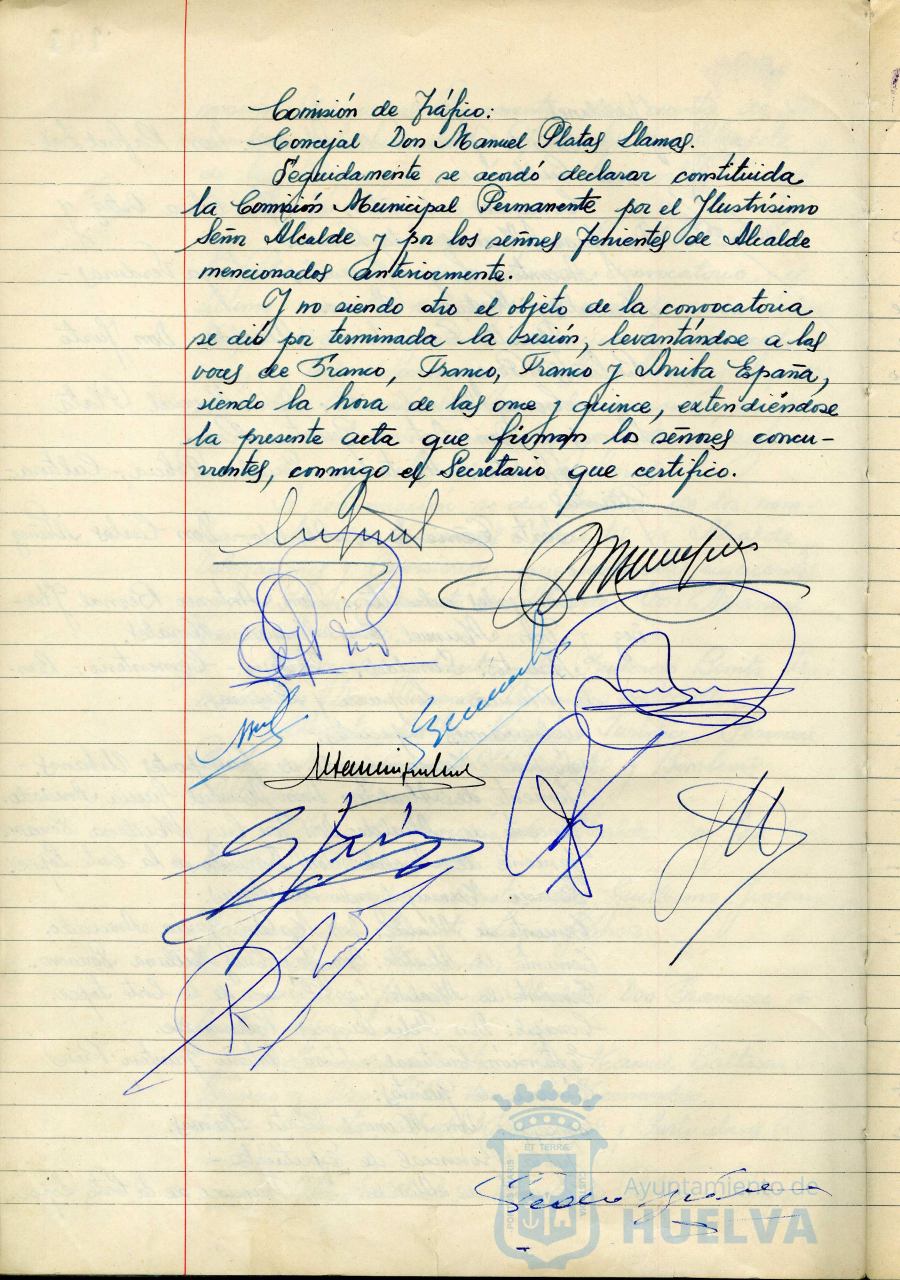 Comisión de Tráfico:
Concejal Don Manuel Platas Llamas.
Seguidamente se acordó declarar constituida
la Comisión Municipal Permanente por el Ilustrísimo
Señor Alcalde y por los señores Tenientes de Alcalde
mencionados anteriormente.
Y no siendo otro el objeto de la convocatoria
se dió por terminada la sesión, levantándose a las
voces de Franco, Franco, Franco y Arriba España,
siendo la hora de las once y quince, extendiéndose
la presente acta que firman los señores concu-
rrentes, conmigo el Secretario que certifico.
Pedro
Ayuntamiento de
HUELVA